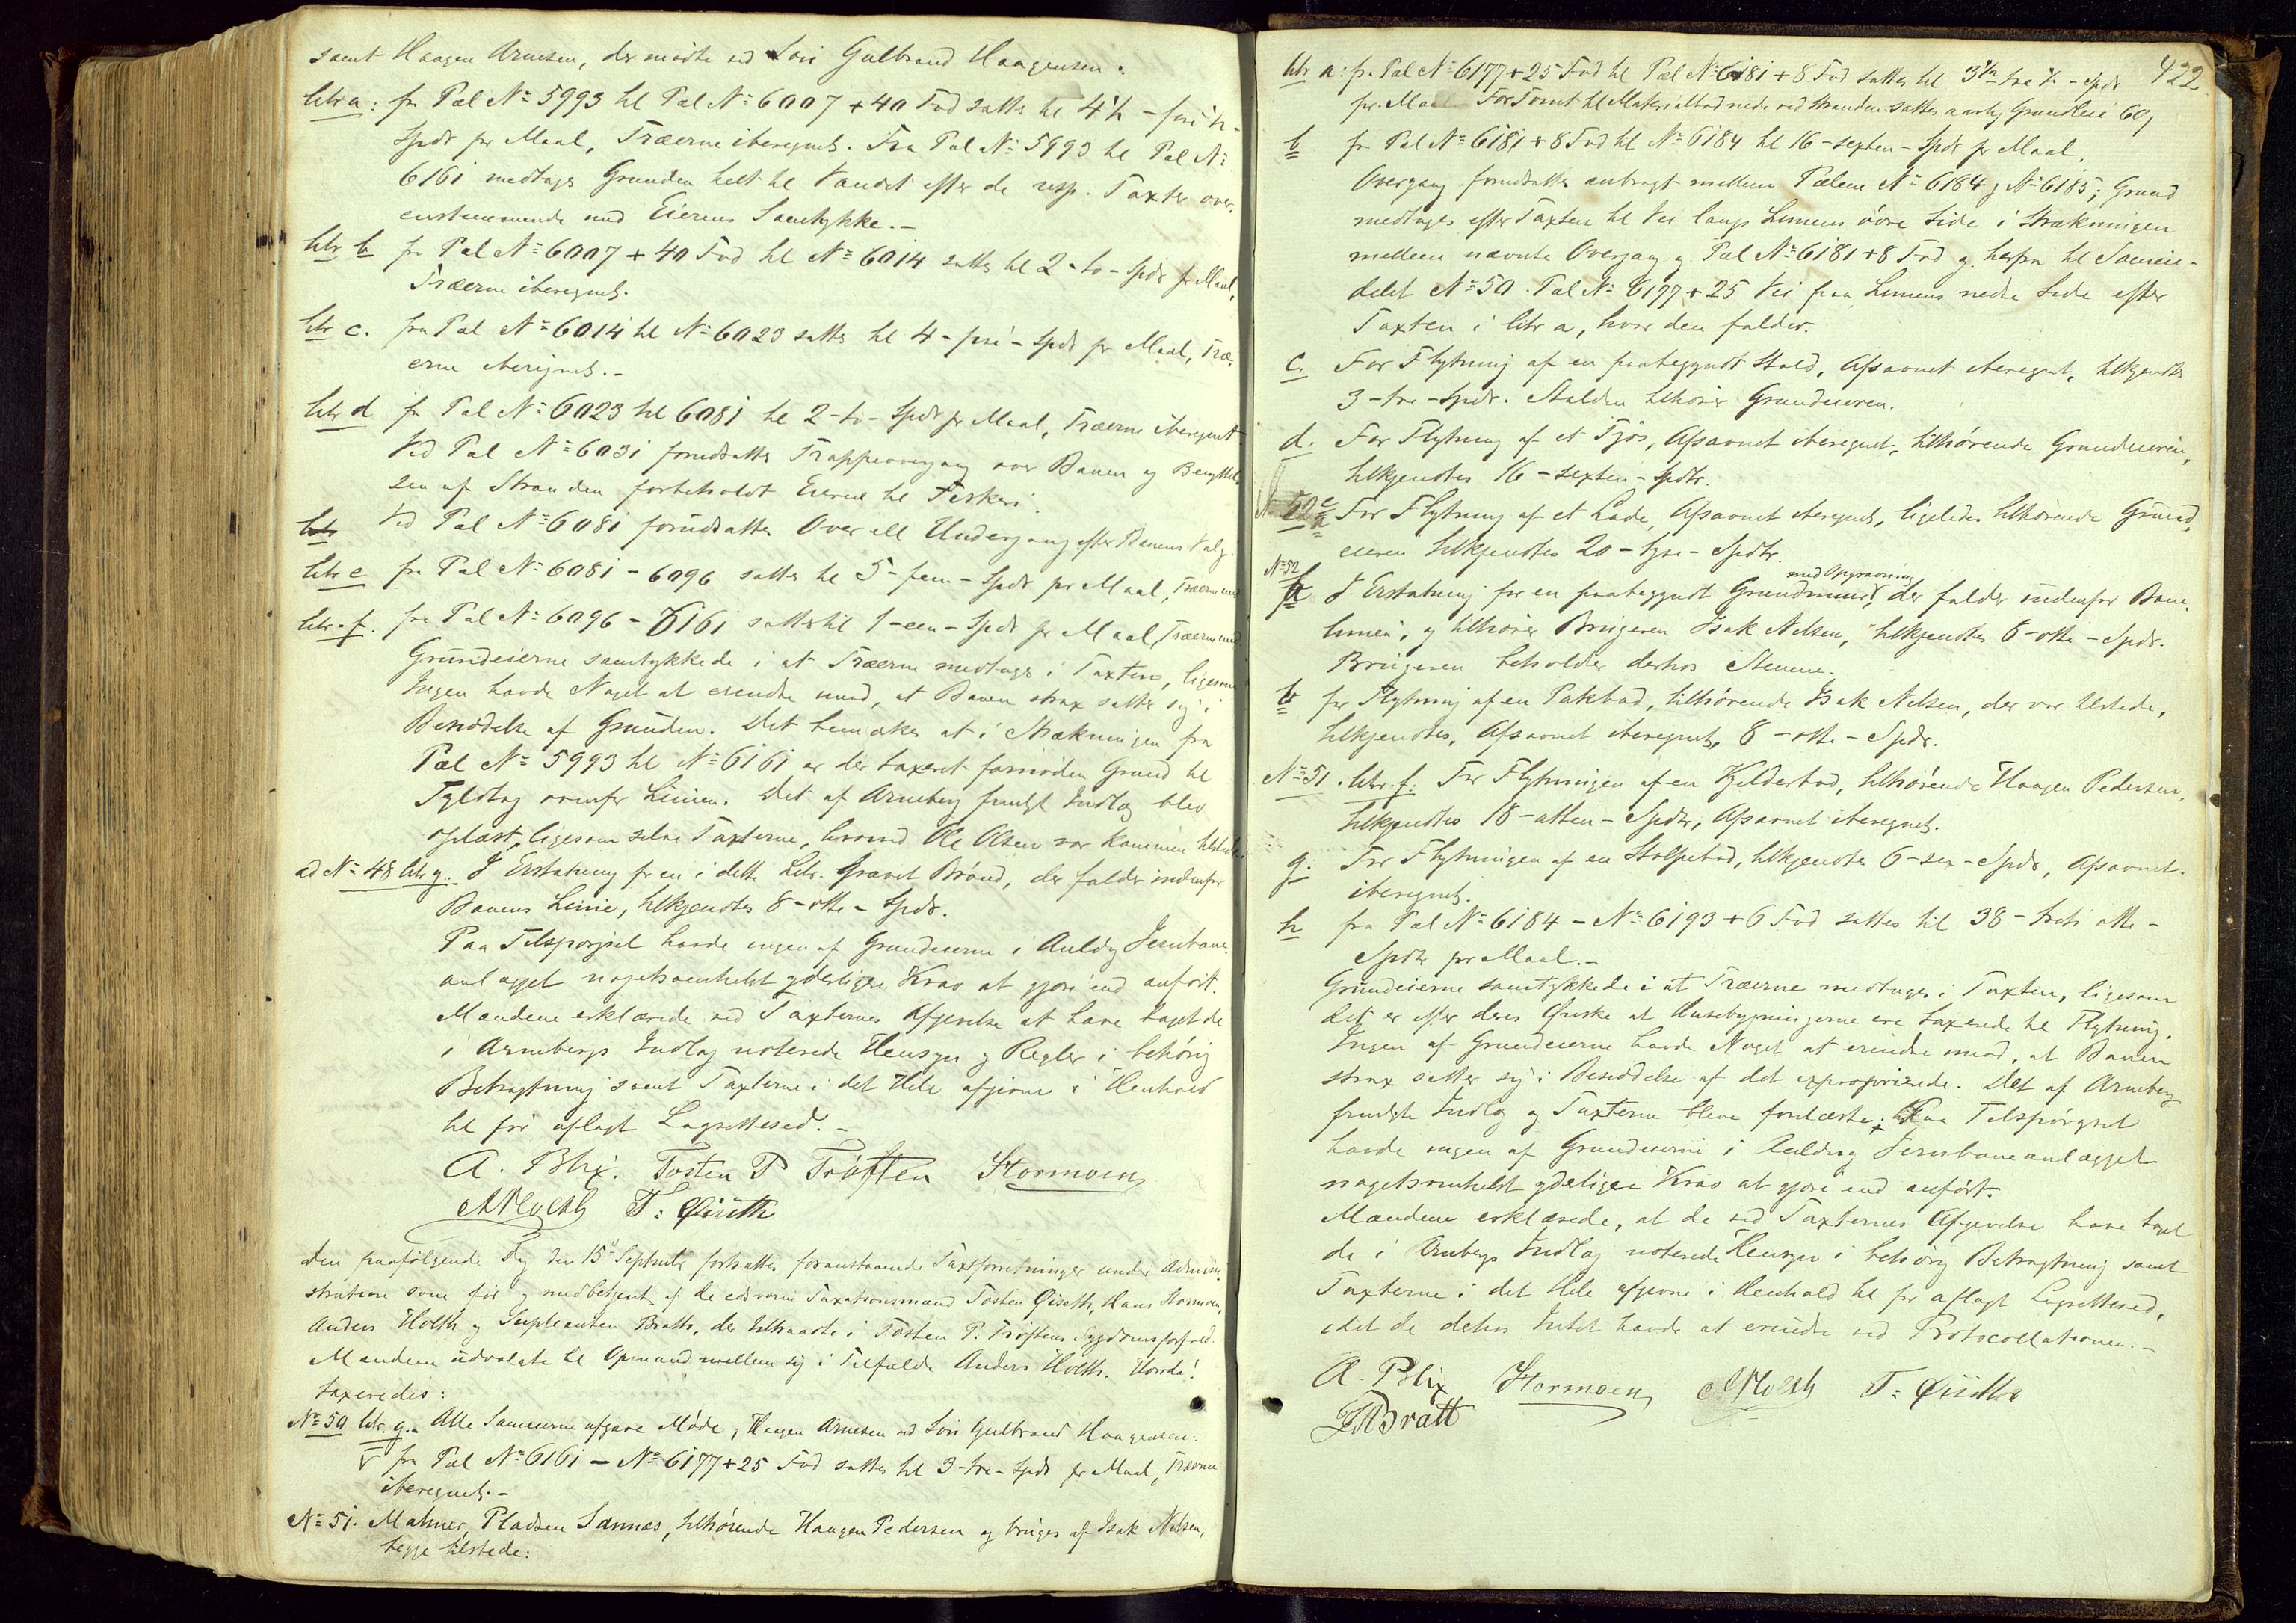 samt Haagen Arnesen, der mødte ved Søn Gulbrand Haagensen.
Litr a: fra Pæl No 5993 til Pæl No 6007 + 40 Fod sattes til 4½ - firi ½ -
Spdr pr Maal, Træerne iberegnet. Fra Pæl No 5993 til Pæl No
6161 medtages Grunden helt til Vandet efter de resp. Taxter over-
ensstemmende med Eierens Samtykke. -
Litr b fra Pæl No 6007 + 40 Fod til No 6014 sattes til 2 - to - Spdr pr Maal,
Træerne iberegnet.
Litr c. fra Pæl No 6014 til No 6023 sattes til 4 - firi - Spdr pr Maal, Træ-
erne iberegnet. -
Litr d fra Pæl No 6023 til 6081 til 2 - to - Spdr pr Maal, Træerne iberegnet
Ved Pæl No 6031 forudsattes Trappeovergang over Banen og Benyttel-
sen af Stranden forbeholdt Eierne til Fiskeri.
Litr Ved Pæl No 6081 forudsattes Over ell Undergang efter Banens Valg.
Litr e fra Pæl No 6081 - 6096 sattes til 5 - fem - Spdr pr Maal, Træerne med
Litr. f. fra Pæl No 6096 - 6161 sattes til 1 - een - Spdr pr Maal, Træerne med
Grundeierne samtykkede i at Træerne medtages i Taxten, ligesom
Ingen havde Noget at erindre mod, at Banen strax sætter sig i
Besiddelse af Grunden. Det bemærkes at i Strækningen fra
Pæl No 5993 til No 6161 er der taxeret fornøden Grund til
Fyldtag ovenfor Linien. Det af Arneberg fremlagt Indlæg blev
oplæst, ligesom selve Taxterne, hvorved Ole Olsen var kommen tilstede.
ad No 48 litr g.. I Erstatning for en i dette Litr. Gravet Brønd, der falder indenfor
Banens Linie, tilkjendtes 8 - otte - Spdr.
Paa Tilspørgsel havde ingen af Grundeierne i Anledng Jernbane-
anlægget nogetsomhelst yderligere Krav at gjøre end anført.
Mændene erklærede ved Taxternes Afgivelse at have taget de
i Arnebergs Indlæg noterede Hensyn og Regler i behørig
Betragtning samt Taxterne i det Hele afgivne i Henhold
til før aflagt Lagrettesed. -
A. Blix. Tosten P Trøften Stormoen
A Holth T: Qisth
Den paafølgende Dag den 15d Septembr fortsattes foranstaaende Taxtforretninger under Admini-
stration som før og medbetjent af de edsvorne Taxationsmænd Tosten Qiseth, Hans Stormoen,
Anders Holth og Supleanten Bratt, der tiltraadte i Tosten P. Trøftens Sygdomsforfald.
Mændene udvalgte til Opmand mellem sig i Tilfælde Anders Holth. Hvorda!
taxeredes:
No 50 litr. g. Alle Sameierne afgave Møde, Haagen Arnesen ved Søn Gulbrand Haagensen:
fra Pæl No 6161 - No 6177 + 25 Fod sattes til 3 - tre - Spdr pr Maal, Træerne
iberegnet. -
No 51. Malmer, Pladsen Sannæs, tilhørende Haagen Pedersen og bruges af Isak Nilsen,
begge tilstede:
422
litr a: fra Pæl No 6177 + 25 Fod til Pæl No 6181 + 8 Fod sattes til 3½ - tre ½ - Spdr
pr. Maal For Tomt til Materialbod nede ved Stranden sattes aarlig Grundleie 60,
b fra Pæl No 6181 + 8 Fod til No 6184 til 16 - sexten - Spdr pr Maal.
Overgang forudsattes anbragt mellem Pælene No 6184 og No 6185; Grund
medtages efter Taxten til Vei langs Linens øvre Side i Strækningen
mellem nævnte Overgang og Pæl No 6181 + 8 Fod og herfra til Sameie-
delet No 50. Pæl No 6177 + 25 Vei paa Linens nedre Side efter
Taxten i litr a, hvor den falder.
c. For Flytning af en paabegyndt Stald, Afsavnet iberegnet, tilkjendtes
3 - tre - Spdr. Stalden tilhører Grundeieren.
d. For Flytning af et Fjøs, Afsavnet iberegnet, tilhørende Grundeieren,
tilkjendtes 16 - sexten - Spdr.
e For Flytning af et Lade, Afsavnet iberegnet, ligeledes tilhørende Grund-
eieren tilkjendtes 20 - tyve - Spdr.
No 52 a I Erstatning for en paabegyndt Grundmuur med Opgravning, der falder indenfor Bane-
linien, og tilhører Brugeren Isak Nilsen, tilkjendtes 8 - otte - Spdr.
Brugeren beholder derhos Stenene.
b for Flytning af en Pakbod, tilhørende Isak Nilsen, der var tilstede,
tilkjendtes, Afsavnet iberegnet, 8 - otte - Spdr.
No 51. litr. f: For Flytningen af en Kjelderbod, tilhørende Haagen Pedersen,
tilkjendtes 18 - atten - Spdr, Afsavnet iberegnet.
g. For Flytningen af en Stolpebod, tilkjendtes 6 - sex - Spdr, Afsavnet.
iberegnet.
h fra Pæl No 6184 - No 6193 + 6 Fod sattes til 38 - tretiotte -
Spdr pr Maal. -
Grundeierne samtykkede i at Træerne medtages i Taxten, ligesom
det er efter deres Ønske at Husebygningerne ere taxerede til Flytning.
Ingen af Grundeierne havde Noget at erindre mod, at Banen
strax sætter sig i Besiddelse af det exproprierede. Det af Arneberg
fremlagte Indlæg og Taxterne bleve forelæste; Paa Tilspørgsel
havde ingen af Grundeierne i Anledng Jernbaneanlægget
nogetsomhelst yderligere Krav at gjøre end anført.
Mændene erklærede, at de ved Taxternes Afgivelse have taget
de i Arnebergs Indlæg noterede Hensyn i behørig Betragtning samt
Taxterne i det Hele afgivne i Henhold til før aflagt Lagrettesed,
idet de derhos Intet havde at erindre ved Protocollationen. -
A. Blix Stormoen A Holth T: Qisth
Bratt